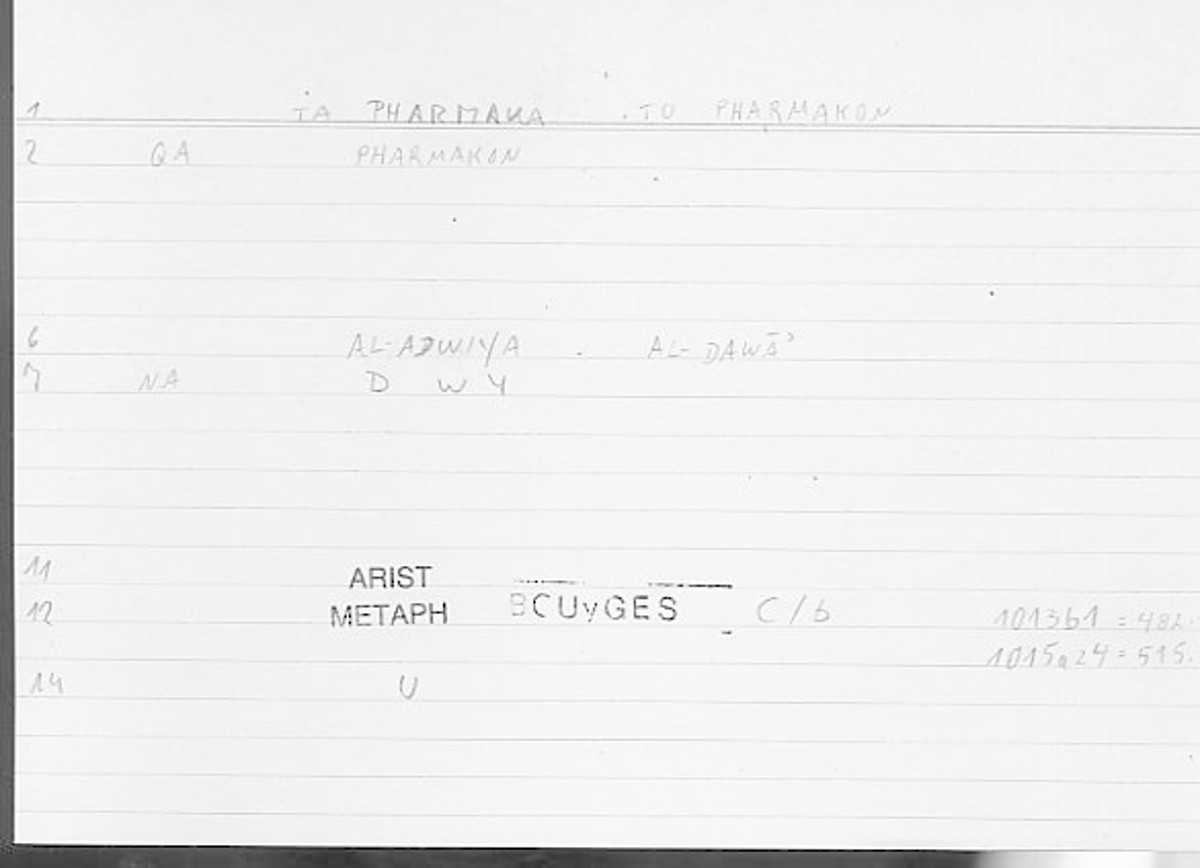 1 TA PHARMAKA . TO PHARMAKON
2 QA PHARMAKON
6 AL-ADWIYA . AL-DAWĀʾ
7 NA D W Y
11 ARIST
12 METAPH BOUyGES C/b 1013b1 = 482.
1015a24 = 515.
14 U